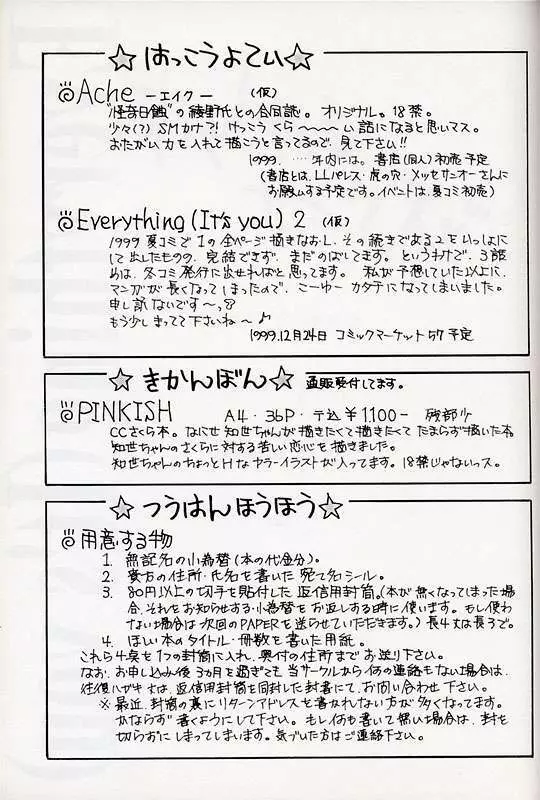 ☆はっこうよてい☆
Ache ーエイクー (仮)
"怪奇日蝕"の綾野氏との合同誌。オリジナル。18禁。
少々(?)SMカナ?!けっこうくら〜〜〜〜い話になると思いマス。
おたがい力を入れて描こうと言ってるので、見て下さい!!
1999. ‥‥年内には。書店(個人)初売予定
(書店とは、LLパレス・虎の穴・メッセサンオーさんに
お願いする予定です。イベントは、夏コミ初売)
Everything (It's you) 2 (仮)
1999夏コミで1の全ページ描きなおし、その続きである2をいっしょに
して出したものの、完結できず、まだのばしてます。というわけで、3話
めは、冬コミ発行に出せればと思ってます。 私が予想していた以上に、
マンガが長くなってしまったので、こーゆーカタチになってしまいました。
申し訳ないです〜っ
もう少しまってて下さいね〜♪
1999.12月24日 コミックマーケット57予定
☆きかんぼん☆ 通販受付してます。
PINKISH A4・36P・〒込¥1100- 残部少
CCさくら本。なにせ知世ちゃんが描きたくて描きたくてたまらず描いた本。
知世ちゃんのさくらに対する苦しい恋心を描きました。
知世ちゃんのちょっとHなカラーイラストが入ってます。18禁じゃないっス。
☆つうはんほうほう☆
用意する物
1. 無記名の小為替(本の代金分)。
2. 貴方の住所・氏名を書いた宛て名シール。
3. 80円以上の切手を貼付した返信用封筒。(本が無くなってしまった場
合、それをお知らせする・小為替をお返しする時に使います。もし使わ
ない場合は次回のPAPERを送らせていただきます。)長4又は長3で。
4. ほしい本のタイトル・冊数を書いた用紙。
これら4点を1つの封筒に入れ、奥付の住所までお送り下さい。
なお、お申し込み後3ヵ月を過ぎても当サークルから何の連絡もない場合は、
往復ハガキ又は、返信用封筒を同封した封書にて、お問い合わせ下さい。
※最近、封筒の裏にリターンアドレスを書かれない方が多くなってます。
かならず書くようにして下さい。もし何も書いて無い場合は、封を
切らずにしまってしまいます。気づいた方はご連絡下さい。